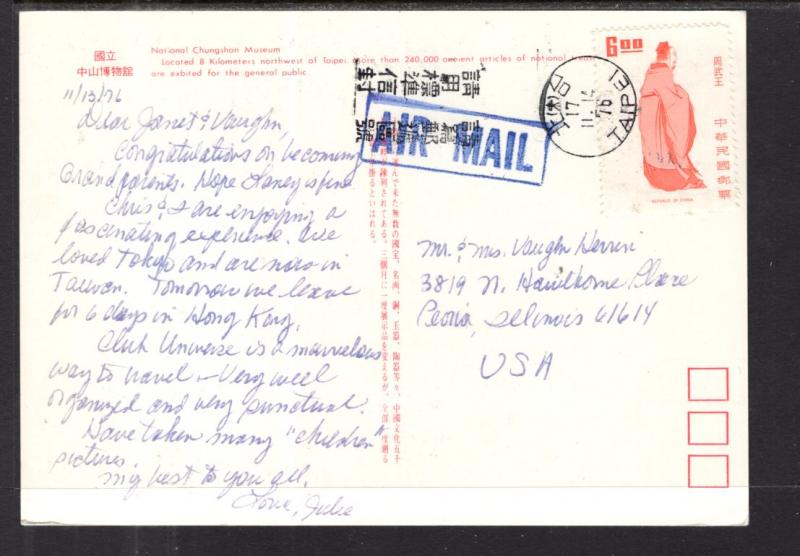 國立
中山博物館
National Chungshan Museum
Located 8 Kilometers northwest of Taipei, more than 240,000 ancient articles of national treas
are exibited for the general public.
請用標準信封
請書郵遞區號
AIR MAIL
台北
11.7.14
76
TAIPEI
6.00
周武王
中華民國郵票
REPUBLIC OF CHINA
11/13/76
Dear Janet & Vaughn,
Congratulations on becoming
Grandparents. Hope Janey is fine.
Chris & I are enjoying a
fascinating experience. We
loved Tokyo and are now in
Taiwan. Tomorrow we leave
for 6 days in Hong Kong.
Club Universe is a marvelous
way to travel - Very well
organized and very punctual.
Have taken many "children"
pictures.
My best to you all.
Love, Julie
んで来た無数の國宝、名画、銅、玉器、陶器等々、中國文化五千
陳列されてある。三個月に一度展示品を変えるが、全部一度廻る
掛るといはれる。
Mr. & Mrs. Vaughn
3819 N. Hawthorne Place
Peoria, Illinois 61614
USA